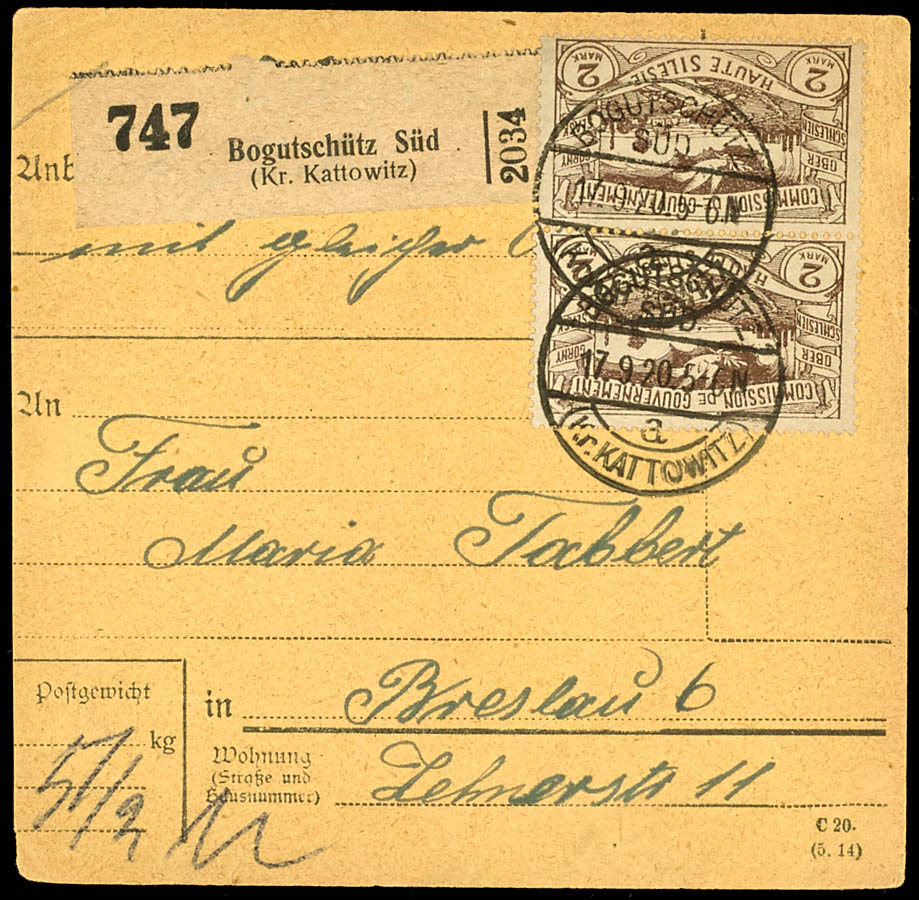 747
Bogutschütz Süd
(Kr. Kattowitz)
2034
2 MARK HAUTE SILESIE 2 MARK
SCHLESIEN OBER GORNY
COMMISSION DE GOUVERNEMENT
BOGUTSCHÜTZ
SÜD
17.9.20.
2 MARK
SCHLESIEN OBER GORNY
COMMISSION DE GOUVERNEMENT
SÜD
17.9.20.5-7N
a
(Kr. KATTOWITZ)
mit gleicher
An
Frau
Maria Tabbert
Postgewicht
kg
in Breslau 6
Wohnung
(Straße und
Hausnummer)
Zehnerstr 11
C 20.
(5. 14)